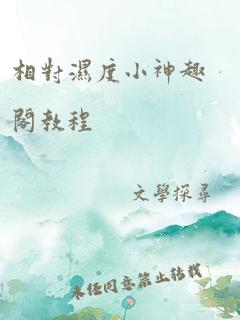 相對濕度小神趣
閣教程
文學探尋
未任同意禁止转载